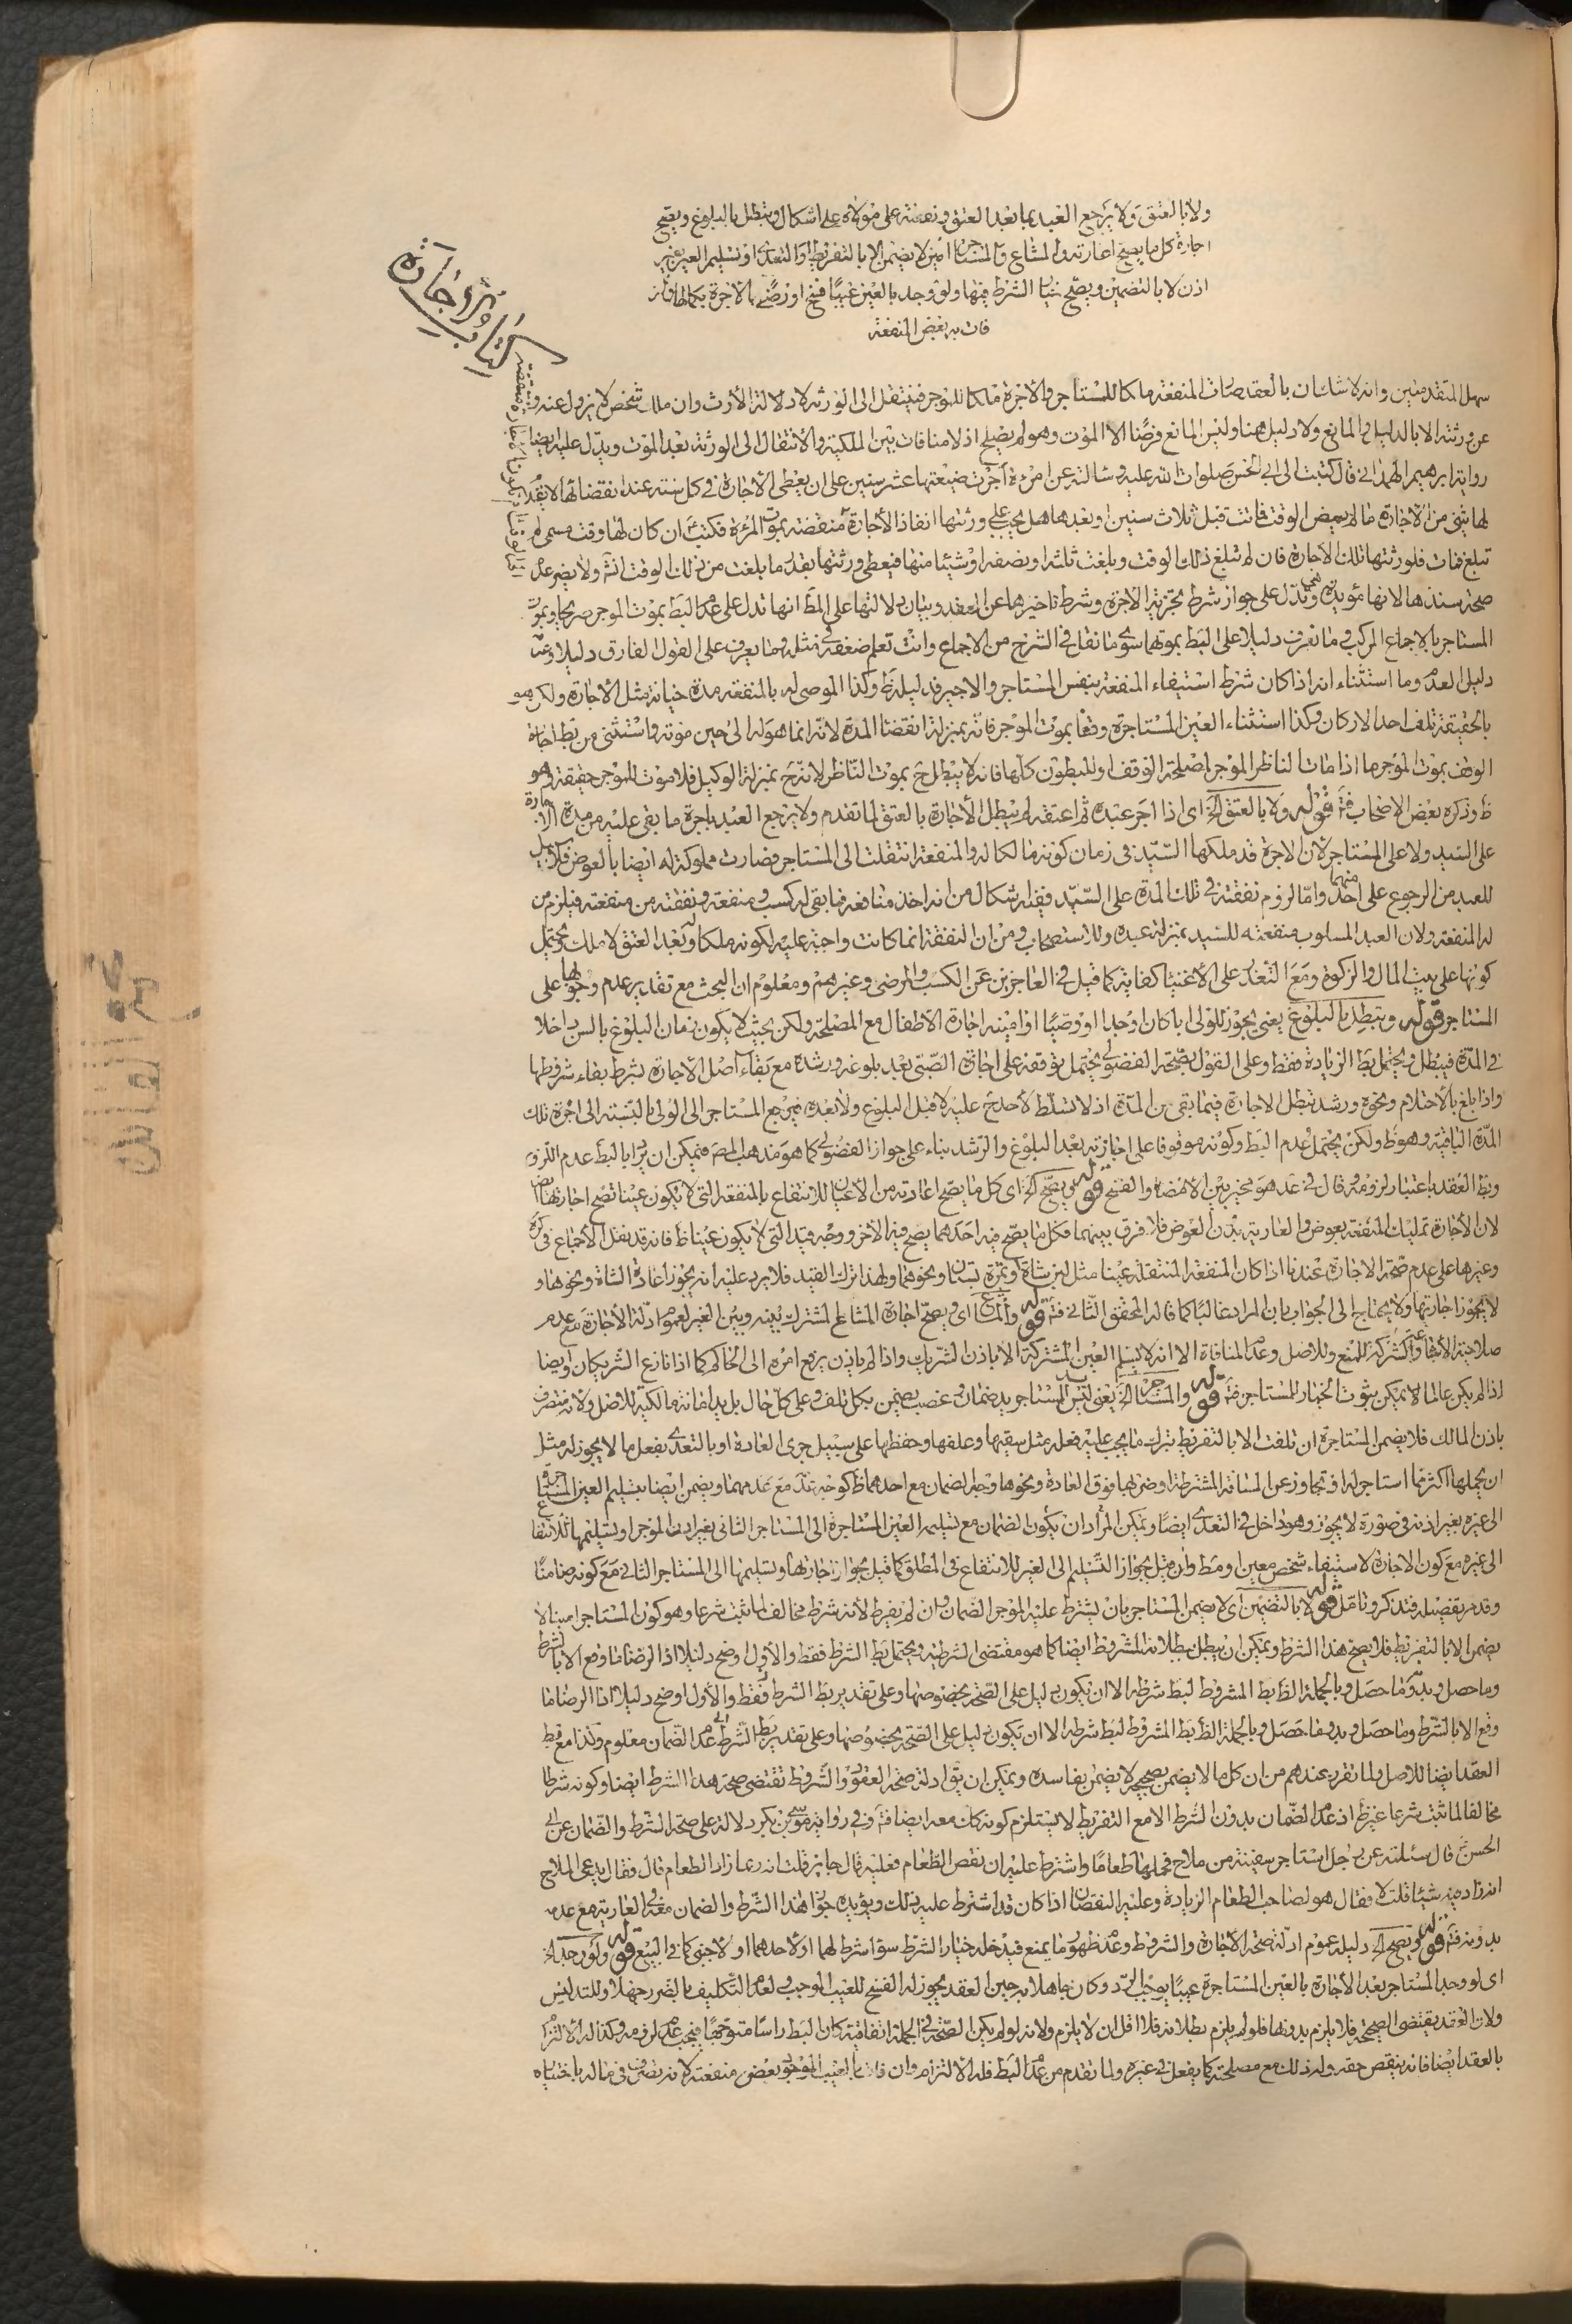 ولا بالعتق ولا يرجع العبد بما بعد العتق ونفقته على مولاه على اشكال وتبطل بالبلوغ ويصح
اجارة كل ما يصح اعارته والمشاع والمستاجر امين لا يضمن الا بالتفريط او التعدى او تسليم العين بغير
اذن لا بالتضمين ويصح خيار الشرط فيها ولو وجد بالعين عيبا فسخ او رضى بالاجرة بكمالها وان
فات به بعض المنفعة
كتاب الاجارة
سهل المتقدمتين وانه لا شك ان بالعقد صارت المنفعة ملكا للمستاجر والاجرة ملكا للموجر فينتقل الى الورثة لادلة الارث وان ملك شخص لا يزول عنه و
عن ورثته الا بالدليل والمانع ولا دليل هنا وليس المانع فرضا الا الموت وهو لم يصلح اذ لا منافات بين الملكية والانتقال الى الورثة بعد الموت ويدل عليه ايضا
رواية ابرهيم الهمدانى قال كتبت الى ابى الحسن صلوات الله عليه وسالته عن امرءة آجرت ضيعتها عشر سنين على ان يعطى الاجارة فى كل سنة عند انقضائها لا يقدم
لها شئ من الاجارة ما لم يمض الوقت فماتت قبل ثلاث سنين او بعدها هل يجب على ورثتها انفاذ الاجارة
تبلغ فمات فلورثتها تلك الاجارة فان لم تبلغ ذلك الوقت وبلغت ثلثه او نصفه او شيئا منها فيعطى ورثتها بقدر ما بلغت من ذلك الوقت انش ولا يضر عدم
صحة سندها لانها مؤيدة وتدل على جواز شرط تجزية الاجرة وشرط تاخيرها عن العقد وبيان دلالتها على المط انها تدل على عدم البط بموت الموجر صريحا وبموت
المستاجر بالاجماع المركب وما نعرف دليلا على البط بموتهما سوى ما نقل فى الشرح من الاجماع وانت تعلم ضعفه فى مثله وما يعرف على القول الفارق دليلا وعرفت
دليل العدم وما استثناء انه اذا كان شرط استيفاء المنفعة بنفس المستاجر والاجير فدليله ظ وكذا الموصى له بالمنفعة مدة حياته مثل الاجارة ولكن هو
بالحقيقة تلف احد الاركان وكذا استثناء العين المستاجرة وقفا بموت الموجر فانه بمنزلة انقضاء المدة لانه انما هو له الى حين موته واستثنى من بط اجارة
الوقف بموت المؤجر ما اذا مات الناظر الموجر لمصلحة الوقف او للبطون كلها فانه لا يبطل ح بموت الناظر لانه ح بمنزلة الوكيل فلا موت للموجر حقيقة وهو
ظ وذكره بعض الاصحاب فت قوله ولا بالعتق الخ اى اذا آجر عبده ثم اعتقه لم يبطل الاجارة بالعتق لما تقدم ولا يرجع العبد باجرة ما بقى عليه من مدة الاجارة
على السيد ولا على المستاجر لان الاجرة قد ملكها السيد فى زمان كونه مالكا له والمنفعة انتقلت الى المستاجر فصارت مملوكة له ايضا بالعوض فلا سبيل
للعبد من الرجوع على احد منهما واما لزوم نفقته فى تلك المدة على السيد ففيه اشكال من انه اخذ منافعه فما بقى له كسب ومنفعة ونفقته من منفعته فيلزم من
له المنفعة ولان العبد المسلوب منفعته للسيد بمنزلة عبده وللاستصحاب ومن ان النفقة انما كانت واجبة عليه لكونه ملكا له وبعد العتق لا ملك ويحتمل
كونها على بيت المال والزكوة ومع التعذر على الاغنياء كفاية كما قيل فى العاجزين عن الكسب والمرضى وغيرهم ومعلوم ان البحث مع تقدير عدم وجوبها على
المستاجر قوله وتبطل بالبلوغ يعنى يجوز للولى ابا كان او جدا او وصيا او امينه اجارة الاطفال مع المصلحة ولكن بحيث لا يكون زمان البلوغ بالسن داخلا
فى المدة فيبطل ويحتمل بط الزيادة فقط وعلى القول بصحة الفضولى يحتمل توقفه على اجازة الصبى بعد بلوغه ورشده مع بقاء اصل الاجارة بشرط بقاء شروطها
واذا بلغ بالاحتلام ونحوه ورشد تبطل الاجارة فيما بقى من المدة اذ لا تسلط لاحد ح عليه لا قبل البلوغ ولا بعده فيرجع المستاجر الى الولى بالنسبة الى اجرة تلك
المدة الباقية وهو ظ ولكن يحتمل عدم البط وكونه موقوفا على اجازته بعد البلوغ والرشد بناء على جواز الفضولى كما هو مذهب المص فيمكن ان يراد بالبط عدم اللزوم
وبط العقد باعتبار لزومه وقال فى عد هو مخير بين الامضاء والفسخ قوله ويصح الخ اى كل ما يصح اعارته من الاعيان للانتفاع بالمنفعة التى لا يكون عينا تصح اجارتها ايضا
لان الاجارة تمليك المنفعة بعوض والعارية بدون العوض فلا فرق بينهما فكل ما يصح فيه احدهما يصح فيه الاخر ووجه قيد التى لا يكون عينا ظ فانه قد نقل الاجماع فى كره
وغيرها على عدم صحة الاجارة عندنا اذا كان المنفعة المنتقلة عينا مثل لبن شاة او ثمرة بستان ونحوهما ولهذا ترك القيد فلا يرد عليه انه يجوز اعارة الشاة ونحوها و
لا يجوز اجارتها ولا يحتاج الى الجواب بان المراد غالبا كما قاله المحقق الثانى فت قوله والمشاع اى ويصح اجارة المشاع المشترك بينه وبين الغير لعموم ادلة الاجارة مع عدم
صلاحية الاشاعة والشركة للمنع وللاصل وعدم المنافاة الا انه لا يسلم العين المشتركة الا باذن الشريك واذا لم ياذن يرفع امره الى الحاكم كما اذا تنازع الشريكان وايضا
اذا لم يكن عالما لا يمكن ثبوت الخيار للمستاجر فت قوله والمستاجر الخ يعنى ليس يد المستاجر يد ضمان وغصب يضمن بكل تلف وعلى كل حال بل يد امانة مالكية للاصل ولانه متصرف
باذن المالك فلا يضمن المستاجرة ان تلفت الا بالتفريط بترك ما يجب عليه فعله مثل سقيها وعلفها وحفظها على سبيل جرى العادة او بالتعدى بفعل ما لا يجوز له مثل
ان يحملها اكثر مما استاجر له او تجاوز عن المسافة المشترطة او ضربها فوق العادة ونحوها وجه الضمان مع احدهما ظ كوجه عدمه مع عدمهما ويضمن ايضا بتسليم العين المستاجرة
الى غيره بغير اذنه فى صورة لا يجوز وهو داخل فى التعدى ايضا ويمكن المراد ان يكون الضمان مع تسليم العين المستاجرة الى المستاجر الثانى بغير اذن الموجر او تسليمها للانتفاع
الى غيره مع كون الاجارة لاستيفاء شخص معين او مط وان قيل بجواز التسليم الى الغير للانتفاع فى المطلق كما قيل بجواز اجارتها وتسليمها الى المستاجر الثانى مع كونه ضامنا
وقد مر تفصيله فتذكر وتامل قوله لا بالتضمين اى لا يضمن المستاجر بان يشترط عليه الموجر الضمان وان لم يفرط لانه شرط مخالف لما ثبت شرعا وهو كون المستاجر امينا لا
يضمن الا بالتفريط فلا يصح هذا الشرط ويمكن ان يبطل ببطلانه المشروط ايضا كما هو مقتضى الشرطية ويحتمل بط الشرط فقط والاول اوضح دليلا اذ الرضا ما وقع الا بالشرط
وما حصل وبدونه ما حصل وبالجملة الظ بط المشروط لبط شرطه الا ان يكون دليل على الصحة بخصوصها وعلى تقدير بط الشرط فقط والاول اوضح دليلا اذا الرضا ما
وقع الا بالشرط وما حصل وبدونها ما حصل وبالجملة الظ بط المشروط لبط شرطه الا ان يكون دليل على الصحة بخصوصها وعلى تقدير بط الشرط عدم الضمان معلوم وكذا مع بط
العقد ايضا للاصل ولما تقرر عندهم من ان كل ما لا يضمن بصحيحه لا يضمن بفاسده ويمكن ان يق ادلة صحة العقود والشروط تقتضى صحة هذا الشرط ايضا وكونه شرطا
مخالفا لما ثبت شرعا غير ظ اذ عدم الضمان بدون الشرط الا مع التفريط لا يستلزم كونه كك معه ايضا فت وفى رواية موسى بن بكر دلالة على صحة الشرط والضمان عن ابى
الحسن قال سئلته عن رجل استاجر سفينة من ملاح فحملها طعاما واشترط عليه ان نقص الطعام فعليه قال جايز قلت انه ربما زاد الطعام قال فقال يدعى الملاح
انه زاد فيه شيئا قلت لا فقال هو لصاحب الطعام الزيادة وعليه النقصان اذا كان قد اشترط عليه ذلك ويؤيده جواز هذا الشرط والضمان معه فى العارية مع عدمه
بدونه فت قوله ويصح الخ دليله عموم ادلة صحة الاجارة والشروط وعدم ظهور ما يمنع فيدخله خيار الشرط سواء شرط لهما او لاحدهما او لاجنبى كما فى البيع قوله ولو وجد الخ
اى لو وجد المستاجر بعد الاجارة بالعين المستاجرة عيبا يوجب الرد وكان جاهلا به حين العقد يجوز له الفسخ للعيب الموجب ولعدم التكليف بالضرر جهلا وللتدليس
ولان العقد يقتضى الصحيحة فلا يلزم بدونها فلو لم يلزم بطلانه فلا اقل ان لا يلزم ولانه لو لم يكن الصحة فى الجملة اتفاقية كان البط راسا متوجها فيجب عدم لزومه وكذا له الالتزام
بالعقد ايضا فانه ينقص حقه وله ذلك مع مصلحته كما يفعل فى غيره ولما تقدم من عدم البط فله الالتزام وان فات بالعيب الموجود بعض منفعته لانه تصرف فى ماله باختياره